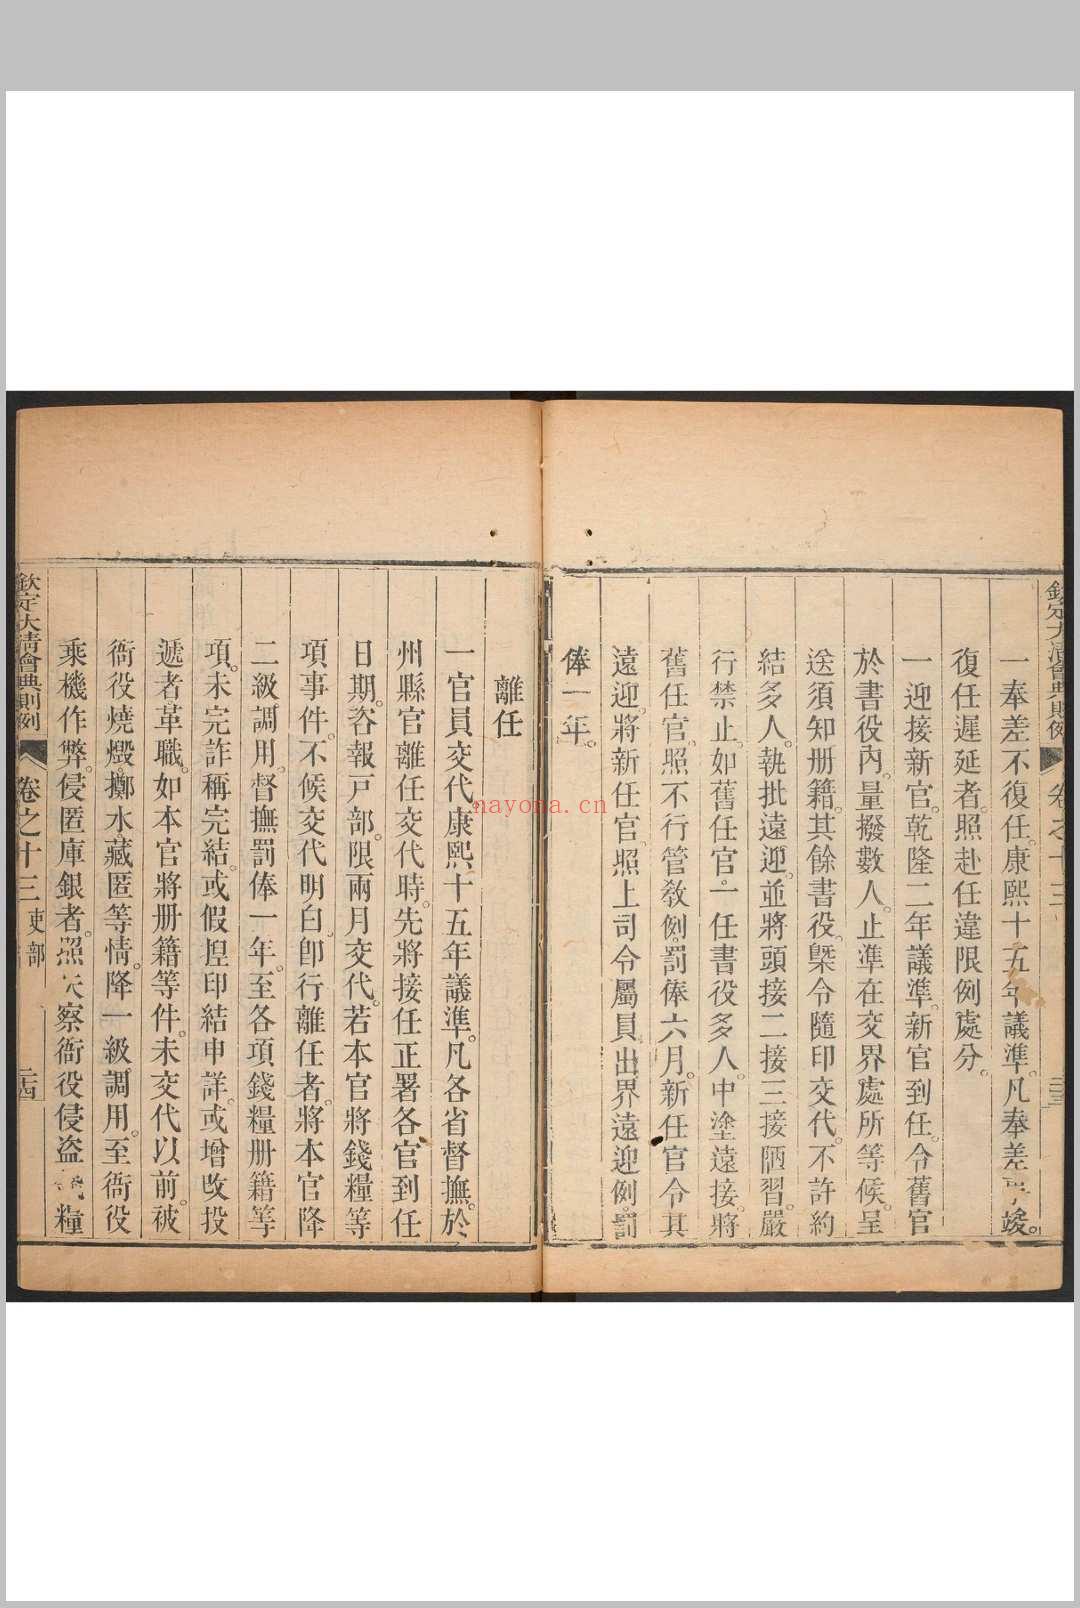 欽定大清會典則例 卷之十三
一奉差不復任康熙十五年議準凡奉差事竣
復任遲延者照赴任違限例處分
一迎接新官乾隆二年議準新官到任令舊官
於書役內量撥數人止準在交界處所等候呈
送須知册籍其餘書役槩令隨印交代不許約
結多人執批遠迎並將頭接二接三接陋習嚴
行禁止如舊任官一任書役多人中塗遠接將
舊任官照不行管敎例罰俸六月新任官令其
遠迎將新任官照上司令屬員出界遠迎例罰
俸一年
離任
一官員交代康熙十五年議準凡各省督撫於
州縣官離任交代時先將接任正署各官到任
日期咨報戸部限兩月交代若本官將錢糧等
項事件不候交代明白卽行離任者將本官降
二級調用督撫罰俸一年至各項錢糧册籍等
項未完詐稱完結或假揑印結申詳或增改投
遞者革職如本官將册籍等件未交代以前被
衙役燒燬擲水藏匿等情降一級調用至衙役
乘機作弊侵匿庫銀者照失察衙役侵盜糧
欽定大清會典則例 卷之十三 吏部 二十四
nayona.cn